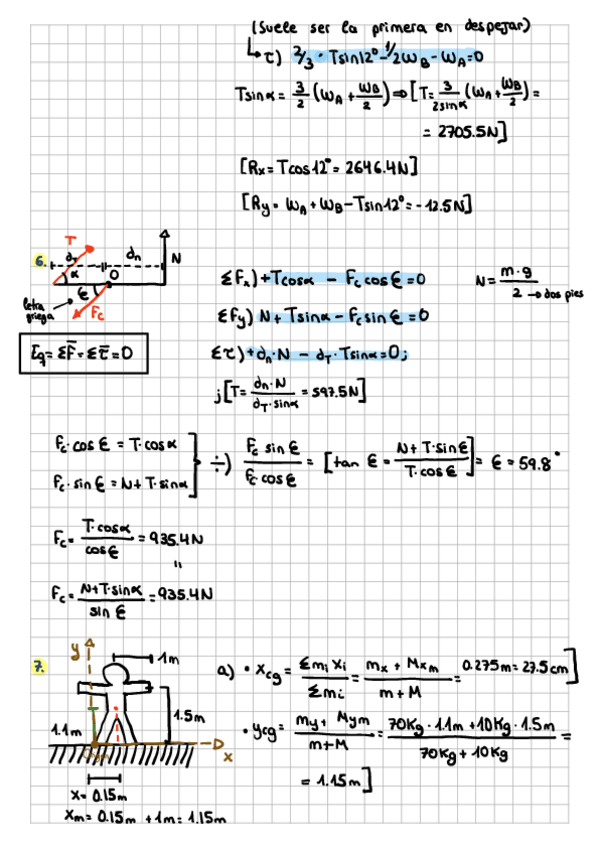 (Suele ser la primera en despejar)
↳ τ) 2/3 · Tsin12° - 1/2 ω_B - ω_A = 0
Tsinα = 3/2 (ω_A + ω_B/2) ⇒ [T = 3/(2sinα) (ω_A + ω_B/2) =
= 2705.5N]
[Rx = Tcos12° = 2646.4N]
[Ry = ω_A + ω_B - Tsin12° = -12.5N]
6.
T
d_T
d_n
N
α
O
ε
letra griega
Fc
ΣFx) + Tcosα - Fc cos ε = 0
N = m·g/2 → dos pies
ΣFy) N + Tsinα - Fc sin ε = 0
Eq = ΣF̄ = Στ̄ = 0
Στ) + d_n·N - d_T·Tsinα = 0;
; [T = d_n·N/(d_T·sinα) = 597.5N]
Fc·cos ε = T·cosα
Fc·sin ε = N + T·sinα
÷) Fc sin ε / Fc cos ε = [tan ε = (N + T·sin ε)/(T·cos ε)] = ε = 59.8°
Fc = T·cosα / cos ε = 935.4N
"
Fc = (N + T·sinα) / sin ε = 935.4N
7.
y
1m
1.5m
1.1m
x
x = 0.15m
Xm = 0.15m + 1m = 1.15m
a) · Xcg = Σmi xi / Σmi = (mx + Mxm)/(m + M) = 0.275m = 27.5cm]
· ycg = (my + Mym)/(m + M) = (70Kg · 1.1m + 10Kg · 1.5m)/(70Kg + 10Kg) =
= 1.15m]